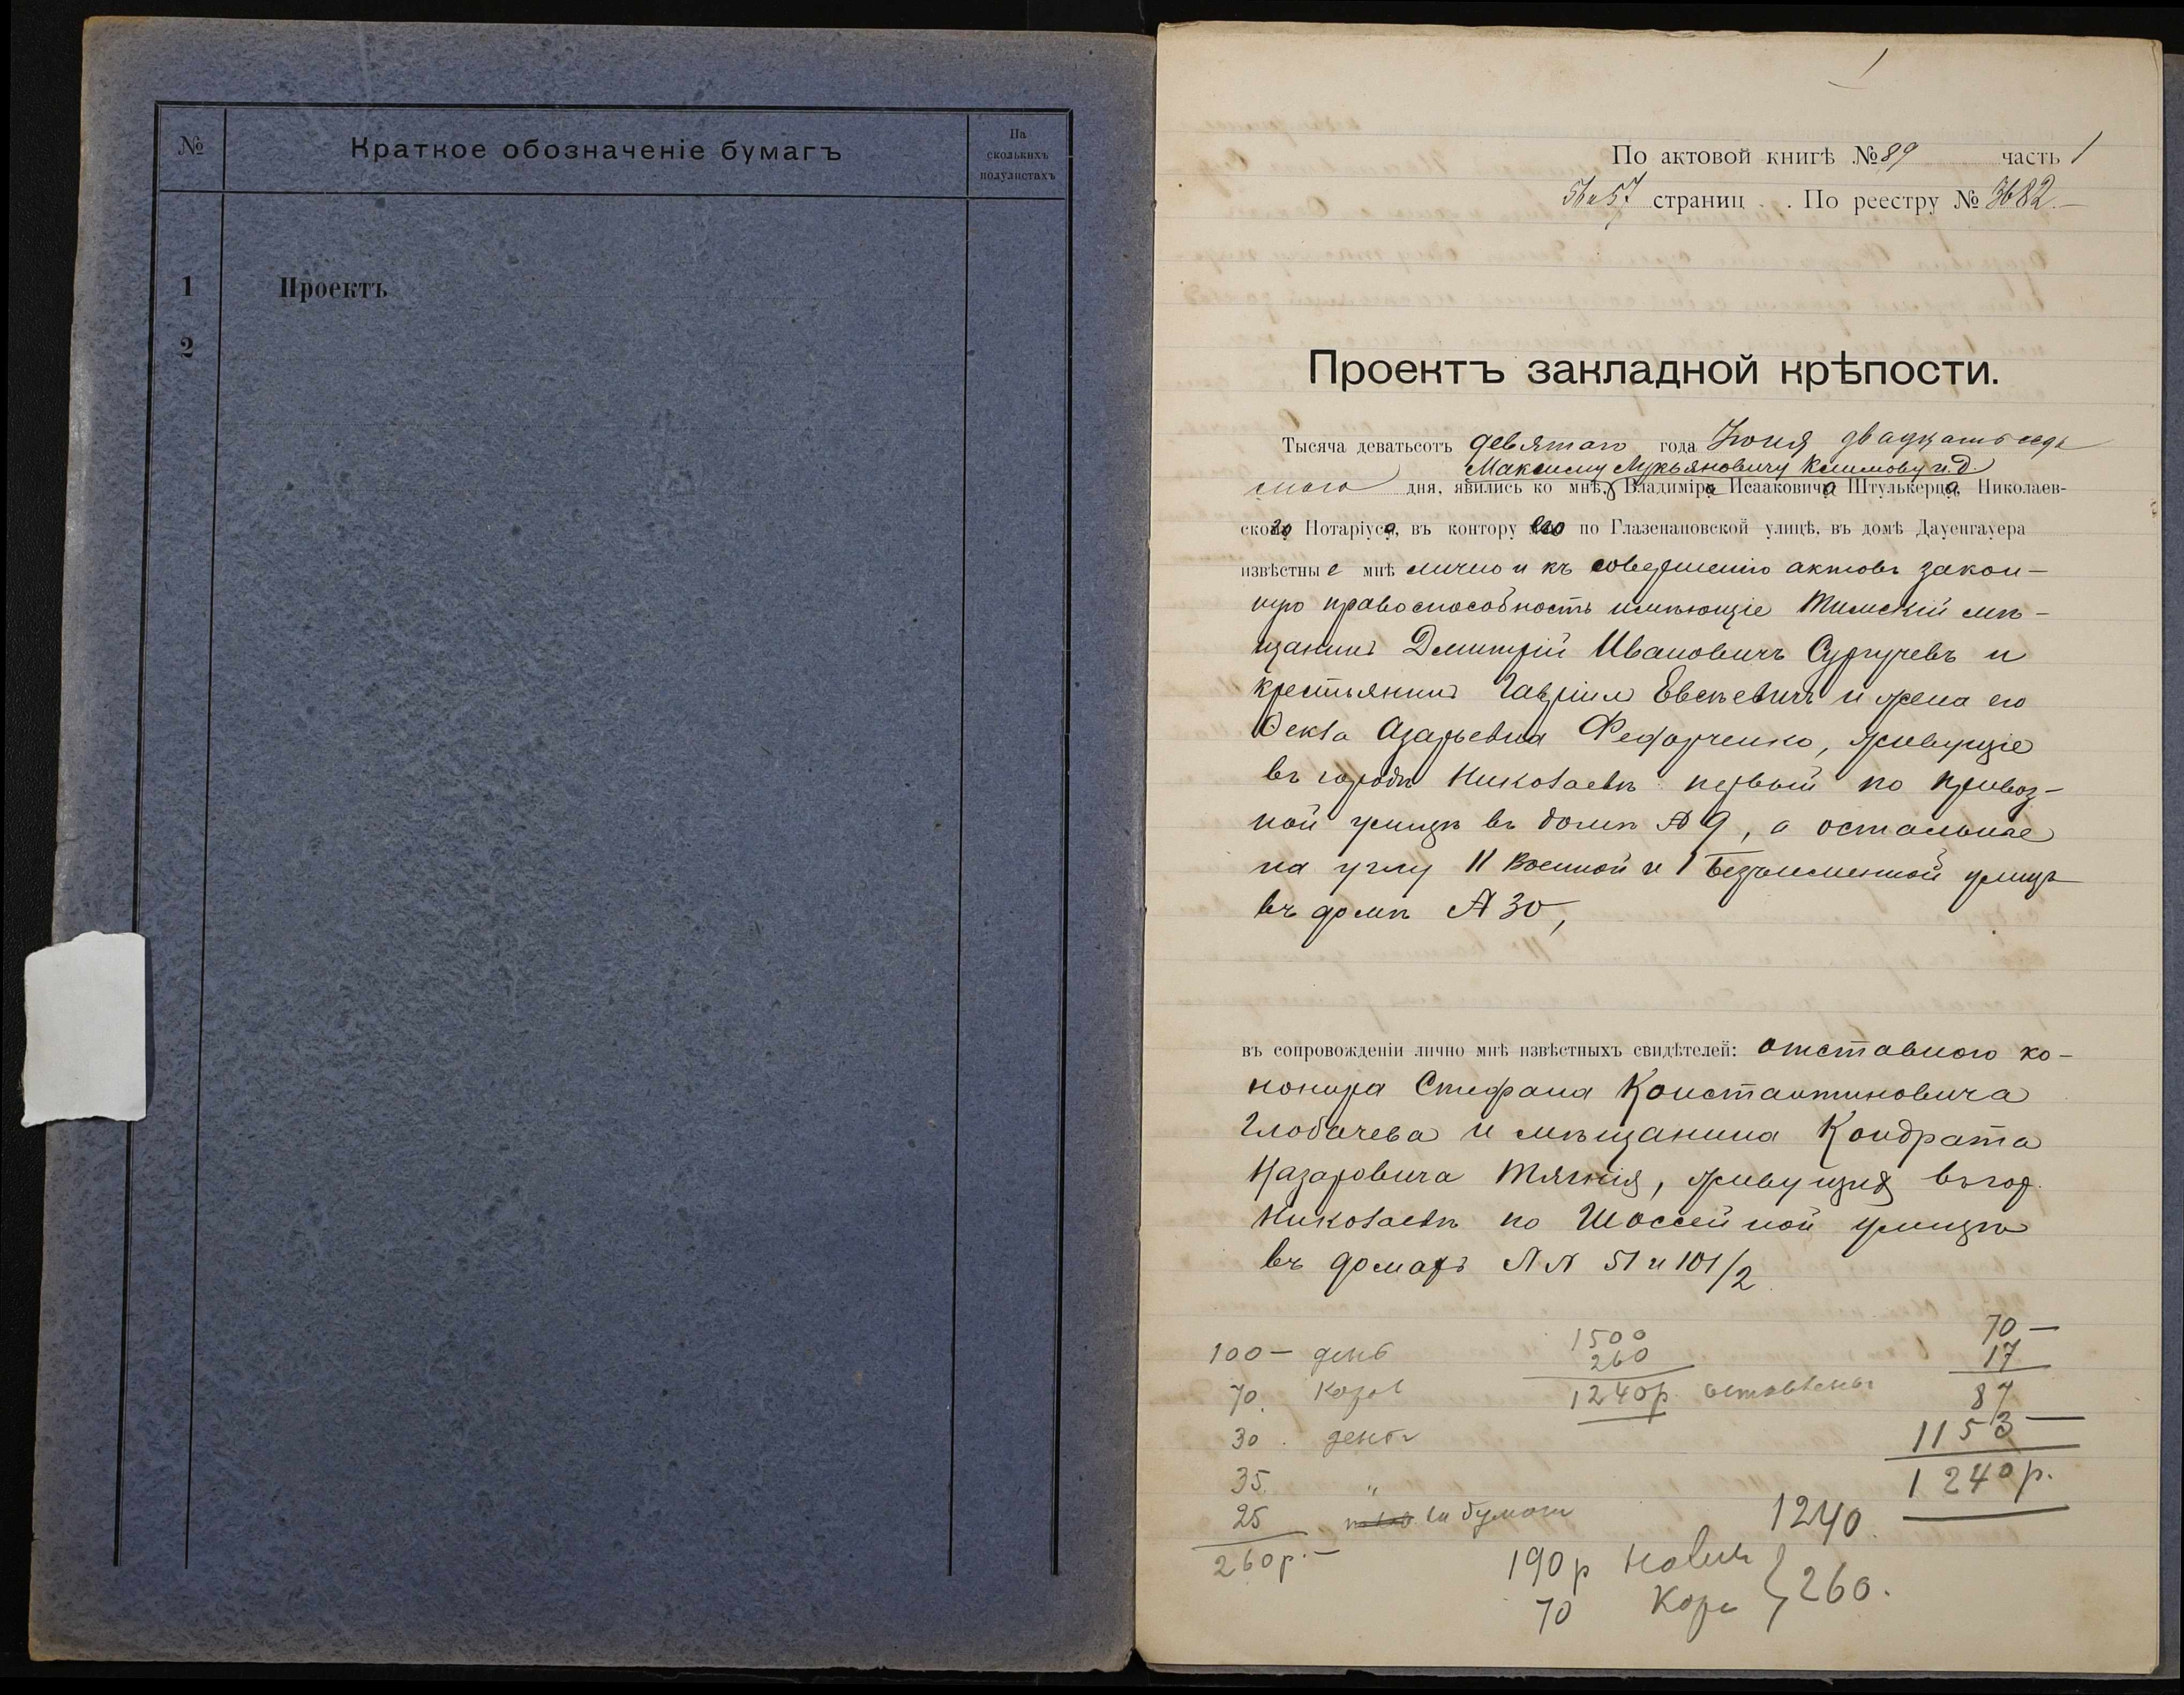 №
Краткое обозначеніе бумагъ
На
сколькихъ
полулистахъ
1 Проектъ
2
1
По актовой книгѣ № 89 часть 1
56 и 57 страниц . . По реестру № 3682.
Проектъ закладной крѣпости.
Тысяча деватьсотъ девятаго года Іюня двадцать седь
Максиму Лукьяновичу Климову и. д.
мого дня, явились ко мнѣ, Владиміра Исааковича Штулькерца, Николаев-
ского Нотаріуса, въ контору его по Глазенаповской улицѣ, въ домѣ Дауенгауера
извѣстны е мнѣ лично и къ совершенію актовъ закон-
ную правоспособность имѣющіе Тимскій мѣ-
щанинъ Дмитрій Ивановичъ Сургучевъ и
крестьянинъ Гавріилъ Евсѣевичъ и жена его
Ѳекла Азарьевна Федорченко, живущіе
въ городѣ Николаевѣ первый по Привоз-
ной улицѣ въ домѣ № 9, а остальные
на углу II Военной и I Безъименной улицъ
въ домѣ № 30,
въ сопровожденіи лично мнѣ извѣстныхъ свидѣтелей: отставного ко-
нонира Стефана Константиновича
Глобачева и мѣщанина Кондрата
Назаровича Тягния, живущихъ въ гор.
Николаевѣ по Шоссейной улицѣ
въ домахъ №№ 51 и 101/2
100 –
70.
30.
35. "
25 бумаги
260 р. –
1500
260
1240 р.
70 –
17
87
1153 –
1240 р.
1240.
190 р
70
260.